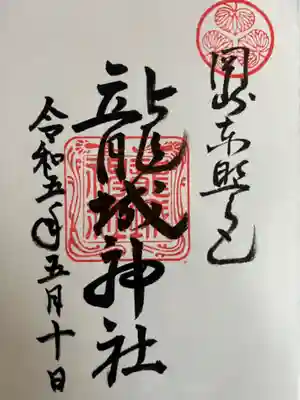 岡崎東照宮
龍城神社
令和五年五月十日